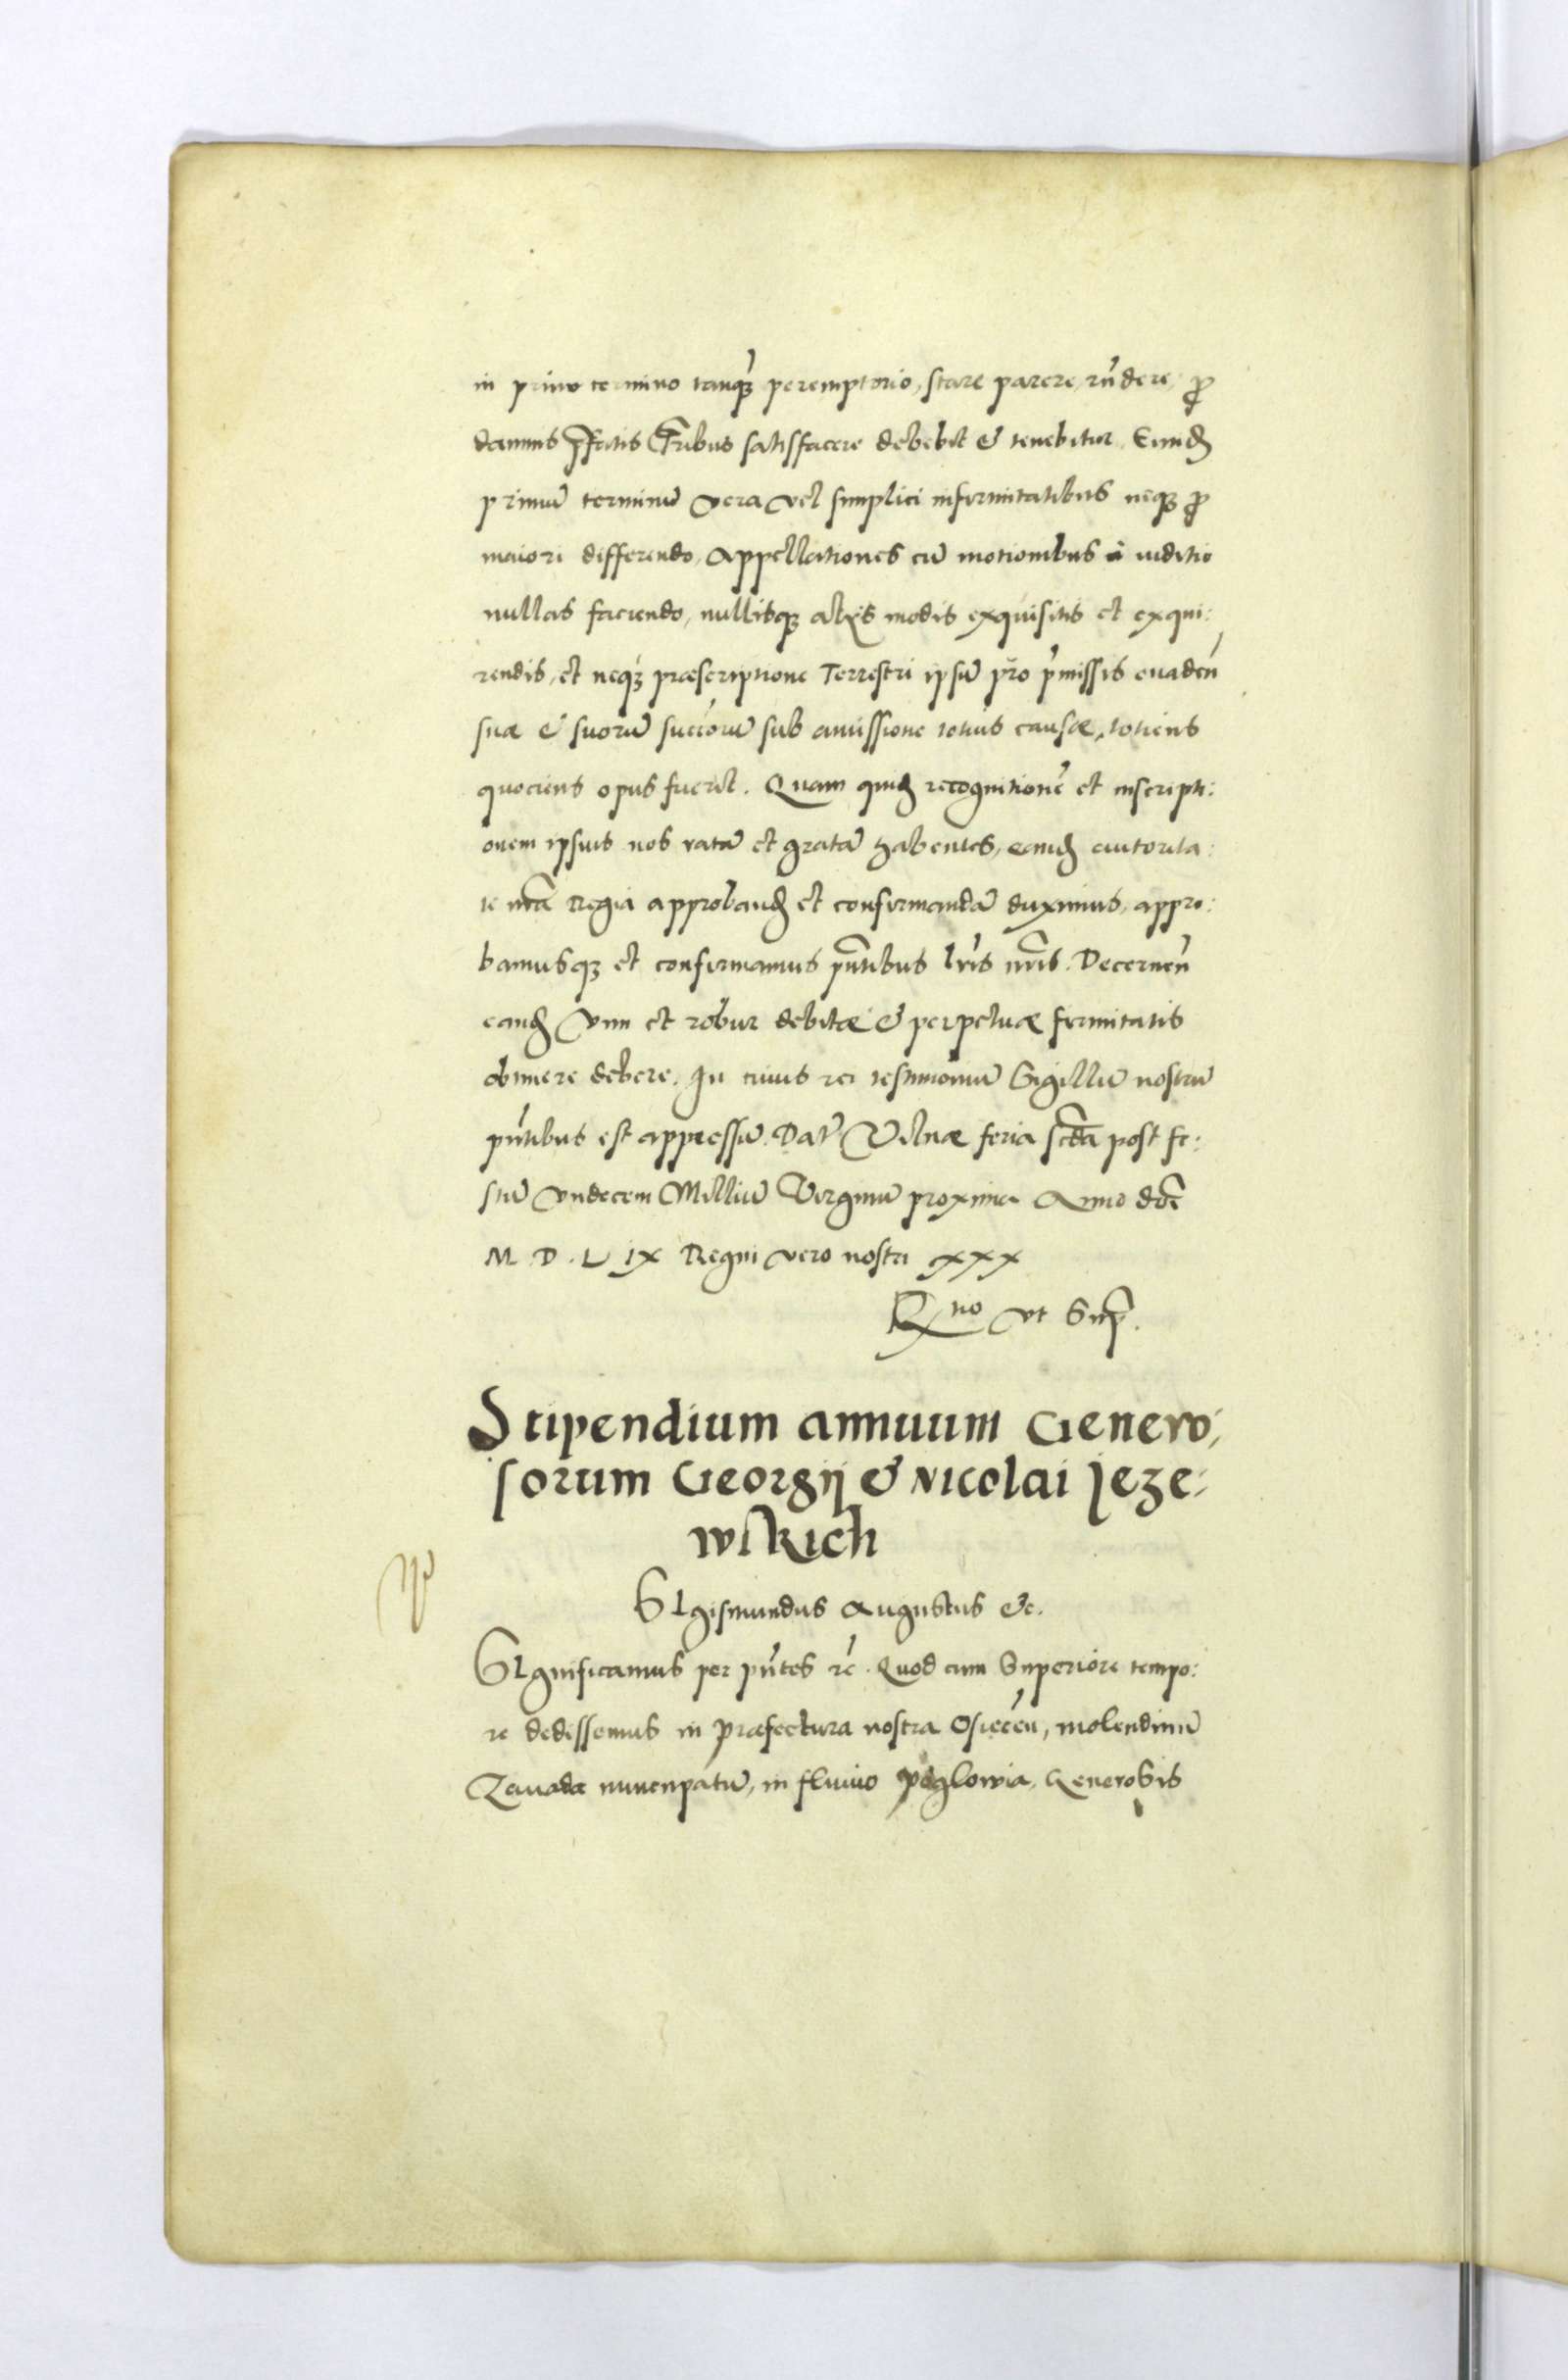 in primo termino tanq̄ʒ peremptorio, stare parere, rñdere, ꝓ
damnis p̃fatis fr̃ibus satisfacere debebit & tenebitur. Eund̃
primũ terminũ vera vel simplici infirmitatibus neqʒ ꝓ
maiori differendo, Appellationes cũ motionibus à iuditio
nullas faciendo, nullisqʒ alijs modis exquisitis et exqui:
rendis, et neqʒ præscriptione Terrestri ipsũ p̃ro p̃missis euadeñ
suæ & suorũ succ̃orũ sub amissione totius causæ, totiens
quociens opus fuerit. Quam quid̃ recognitionẽ et inscripti:
onem ipsius nos ratã et gratã habentes, eand̃ autorita:
te nr̃a Regia approband̃ et confirmandã duximus, appro:
bamusqʒ et confirmamus pñtibus lr̃is nr̃is. Decerneñ
eand̃ vim et robur debitæ & perpetuæ firmitatis
obtinere debere. In cuius rei testimoniũ Sigillũ nostrũ
pñtibus est appressũ. Dat̃ Vilnæ feria sc̃da post fe:
stũ vndecem Milliũ Virginũ proxima Anno dñi
M. D. L IX Regni vero nostri XXX
Rno vt Sup̃.
Stipendium annuum Genero:
sorum Georgij & Nicolai Jeze:
wskich
SIgismundus Augustus &c.
SIgnificamus per pñtes rẽ. Quod cum Superiore tempo:
re dedissemus in præfectura nostra Osieceñ, molendinũ
Zavada nuncupatũ, in fluuio Pęglowia, Generosis